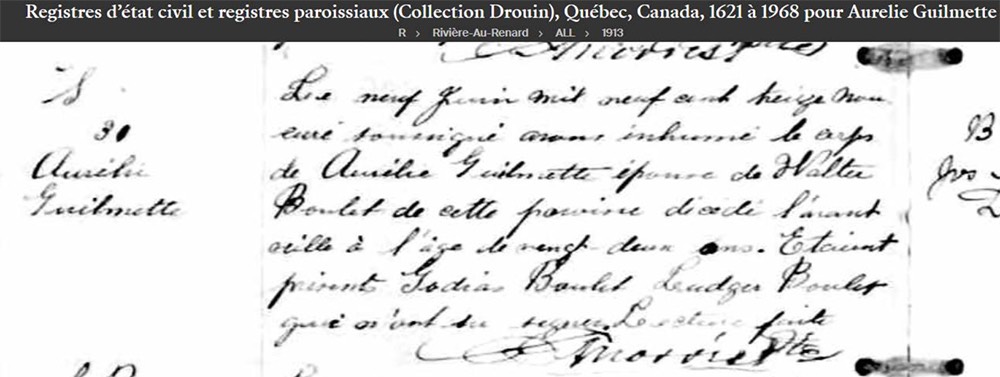 Registres d'état civil et registres paroissiaux (Collection Drouin), Québec, Canada, 1621 à 1968 pour Aurelie Guilmette
R > Rivière-Au-Renard > ALL > 1913
S
30
Aurélie
Guilmette
Le neuf Juin mil neuf cent treize nou
curé soussigné avons inhumé le corps
de Aurélie Guilmette épouse de Walter
Boulet de cette paroisse décédé l'avant
veille à l'âge de vingt-deux ans. Etaient
présents Godias Boulet Ludger Boulet
qui n'ont su signer. Lecture faite
Morris Ptre
B
Jos